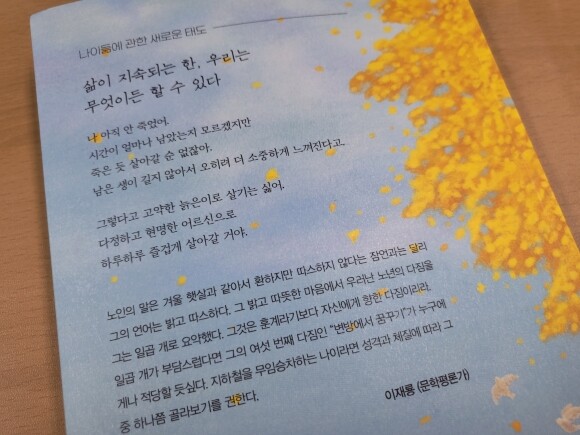 나이듦에 관한 새로운 태도
삶이 지속되는 한, 우리는
무엇이든 할 수 있다
나 아직 안 죽었어.
시간이 얼마나 남았는지 모르겠지만
죽은 듯 살아갈 순 없잖아.
남은 생이 길지 않아서 오히려 더 소중하게 느껴진다고.
그렇다고 고약한 늙은이로 살기는 싫어.
다정하고 현명한 어르신으로
하루하루 즐겁게 살아갈 거야.
노인의 말은 겨울 햇실과 같아서 환하지만 따스하지 않다는 잠언과는 달리
그의 언어는 밝고 따스하다. 그 밝고 따뜻한 마음에서 우러난 노년의 다짐을
그는 일곱 개로 요약했다. 그것은 훈계라기보다 자신에게 향한 다짐이리라.
일곱 개가 부담스럽다면 그의 여섯 번째 다짐인 “변방에서 꿈꾸기”가 누구에
게나 적당할 듯싶다. 지하철을 무임승차하는 나이라면 성격과 체질에 따라 그
중 하나쯤 골라보기를 권한다.
이재룡 (문학평론가)